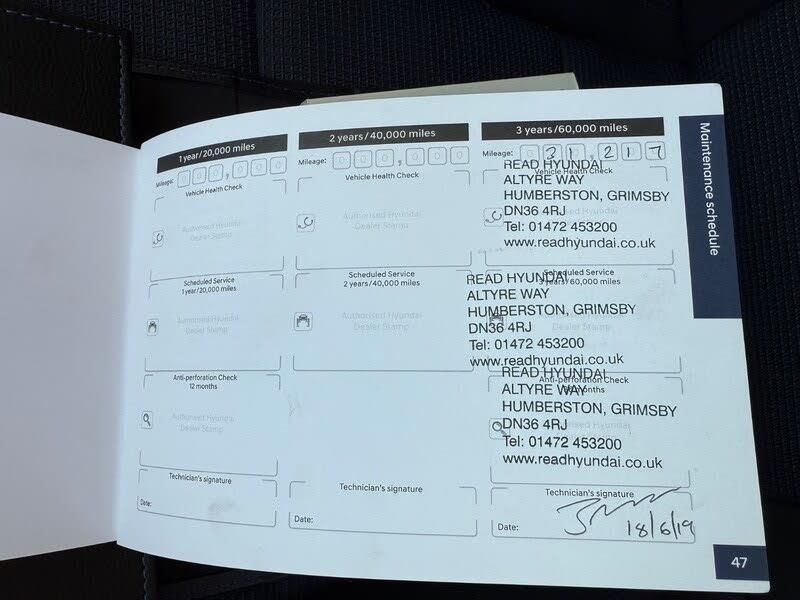 1 year/20,000 miles
Mileage: 0 0 0, 0 0 0
Vehicle Health Check
Authorised Hyundai
Dealer Stamp
Scheduled Service
1 year/20,000 miles
Authorised Hyundai
Dealer Stamp
Anti-perforation Check
12 months
Authorised Hyundai
Dealer Stamp
Technician's signature
Date:
2 years/40,000 miles
Mileage: 0 0 0, 0 0 0
Vehicle Health Check
Authorised Hyundai
Dealer Stamp
Scheduled Service
2 years/40,000 miles
Authorised Hyundai
Dealer Stamp
Technician's signature
Date:
3 years/60,000 miles
Mileage: 0 3 1, 2 1 7
Vehicle Health Check
READ HYUNDAI
ALTYRE WAY
HUMBERSTON, GRIMSBY
DN36 4RJ
Tel: 01472 453200
www.readhyundai.co.uk
Scheduled Service
3 years/60,000 miles
READ HYUNDAI
ALTYRE WAY
HUMBERSTON, GRIMSBY
DN36 4RJ
Tel: 01472 453200
www.readhyundai.co.uk
Anti-perforation Check
months
READ HYUNDAI
ALTYRE WAY
HUMBERSTON, GRIMSBY
DN36 4RJ
Tel: 01472 453200
www.readhyundai.co.uk
Technician's signature
Date: 18/6/19
Maintenance schedule
47